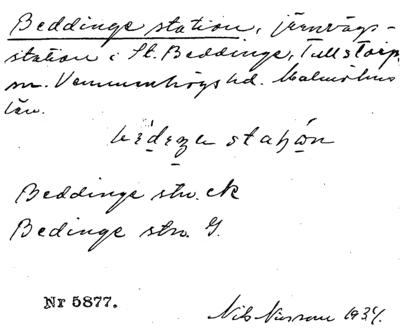 Beddinge station, järnvägs-
station i St. Beddinge, Tullstorp
sn. Vemmenhögs hd. Malmöhus
län.
stahọn
Beddinge stn. CK
Bedinge stn. G.
Nr 5877.
Nils Nilsson 1934.